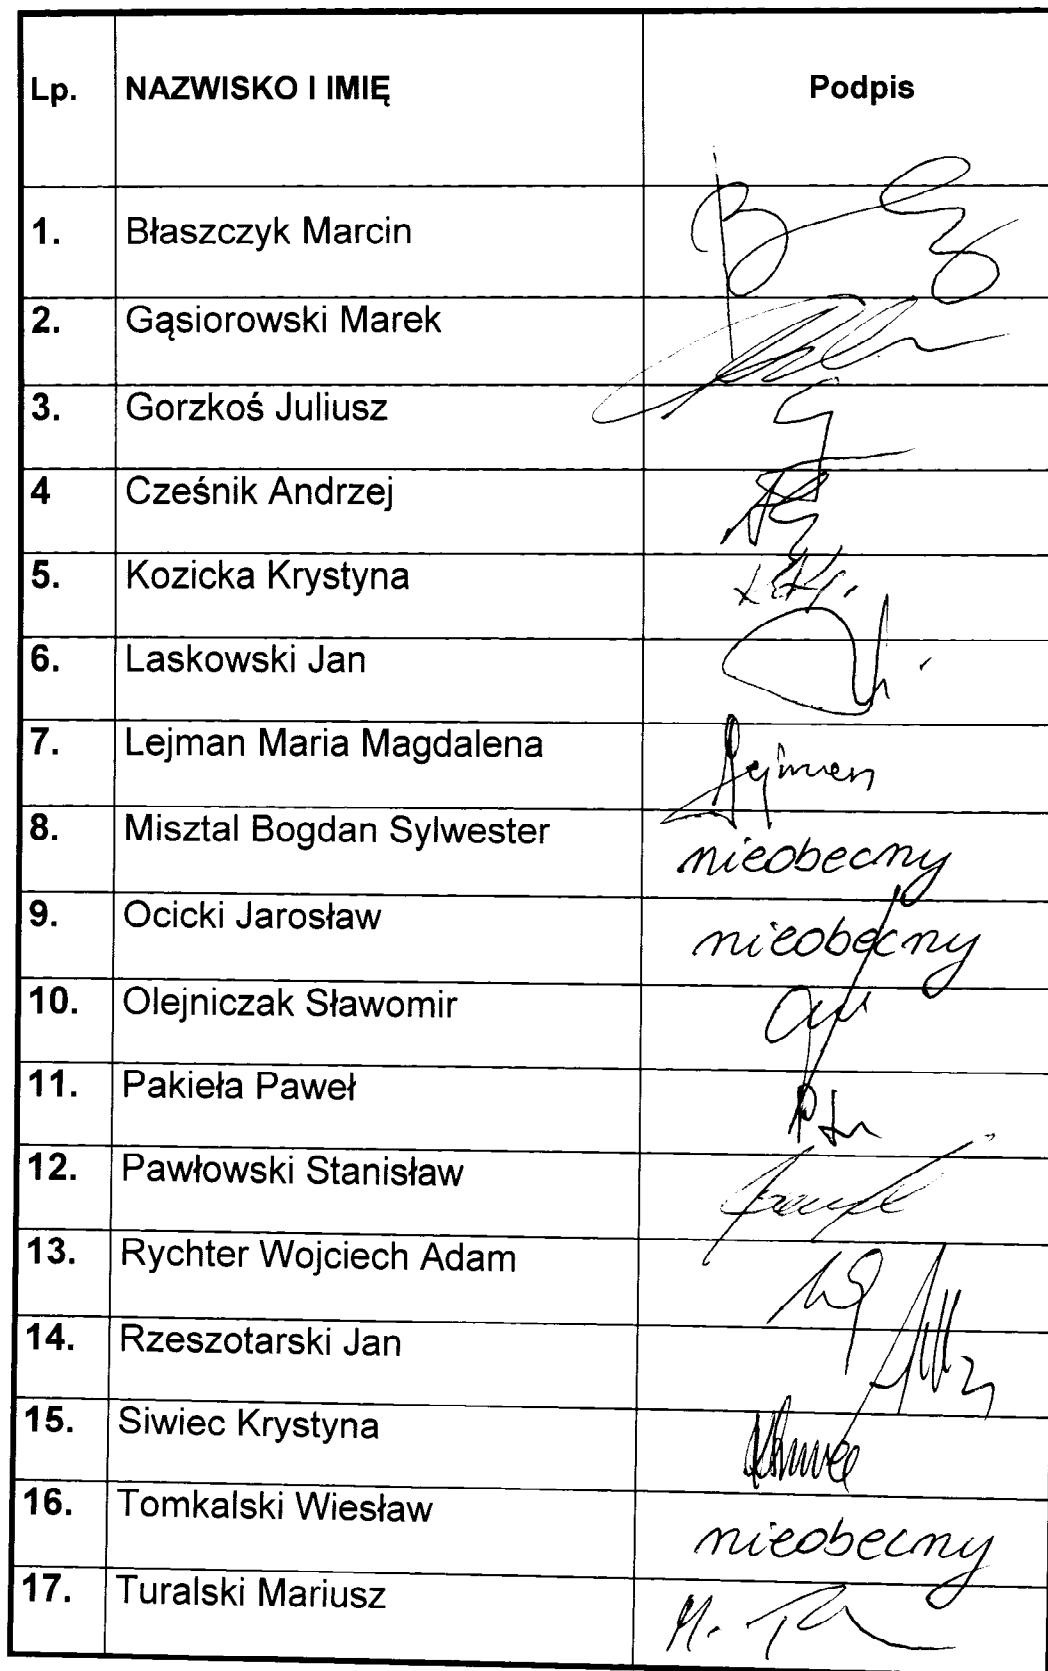 Lp. NAZWISKO I IMIĘ Podpis
1. Błaszczyk Marcin
2. Gąsiorowski Marek
3. Gorzkoś Juliusz
4 Cześnik Andrzej
5. Kozicka Krystyna
6. Laskowski Jan
7. Lejman Maria Magdalena Lejman
8. Misztal Bogdan Sylwester nieobecny
9. Ocicki Jarosław nieobecny
10. Olejniczak Sławomir
11. Pakieła Paweł
12. Pawłowski Stanisław
13. Rychter Wojciech Adam
14. Rzeszotarski Jan
15. Siwiec Krystyna
16. Tomkalski Wiesław nieobecny
17. Turalski Mariusz